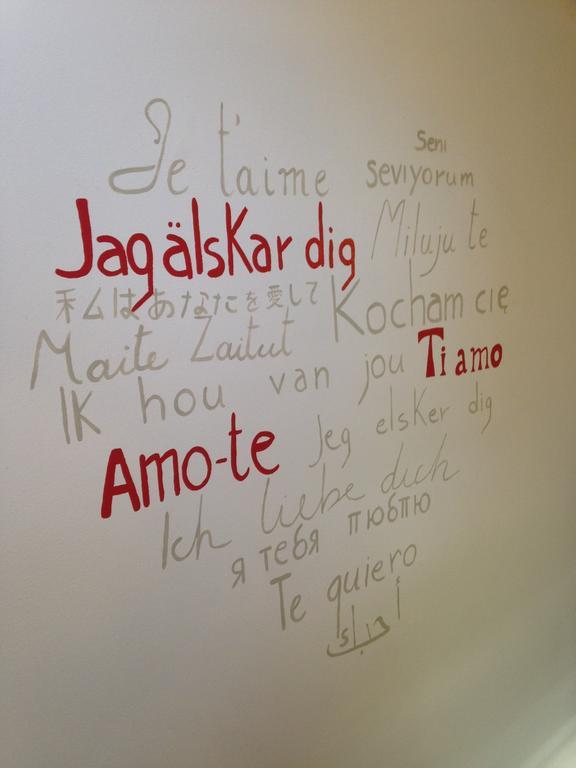 Je t'aime
Seni
seviyorum
Jag älskar dig
Miluju te
私はあなたを愛して
Kocham cię
Maite Zaitut
Ik hou van jou
Ti amo
Amo-te
Jeg elsker dig
Ich liebe dich
я тебя пюбпю
Te quiero
أحبك